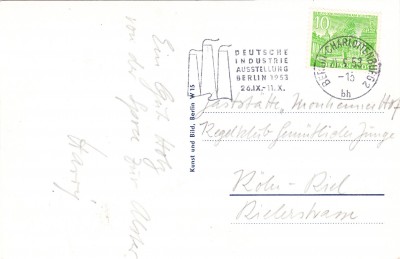 Ein Gut Holz
von der Spree zur Alster
Harry
Kunst und Bild, Berlin W 15
DEUTSCHE
INDUSTRIE
AUSSTELLUNG
BERLIN 1953
26.IX.-11.X.
10
BERLIN-CHARLOTTENBURG 2
53
-15
bh
Gaststätte
Kegelklub Gemütliche Jungs
Köln-Riel
Rielerstrasse